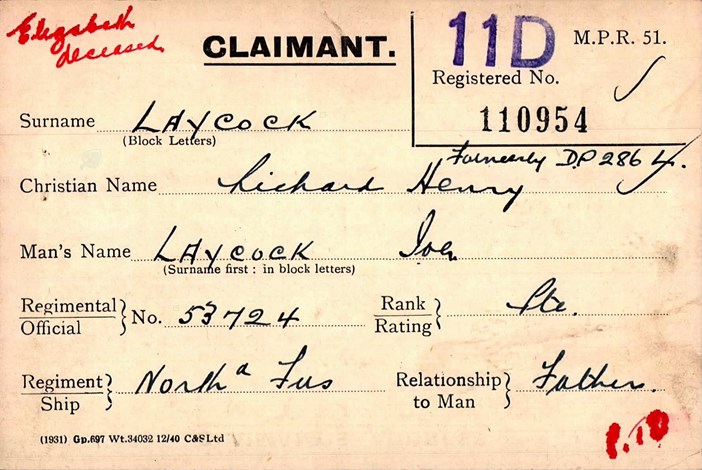 Elizabeth
deceased
CLAIMANT.
11D
M.P.R. 51.
Registered No.
110954
Surname LAYCOCK
(Block Letters)
Formerly D.P 286 4.
Christian Name Richard Henry
Man's Name LAYCOCK Joe
(Surname first : in block letters)
Regimental
Official } No. 53724
Rank
Rating } Pte.
Regiment
Ship } North d Fus
Relationship
to Man } Father.
(1931) Gp.697 Wt.34032 12/40 C&S Ltd